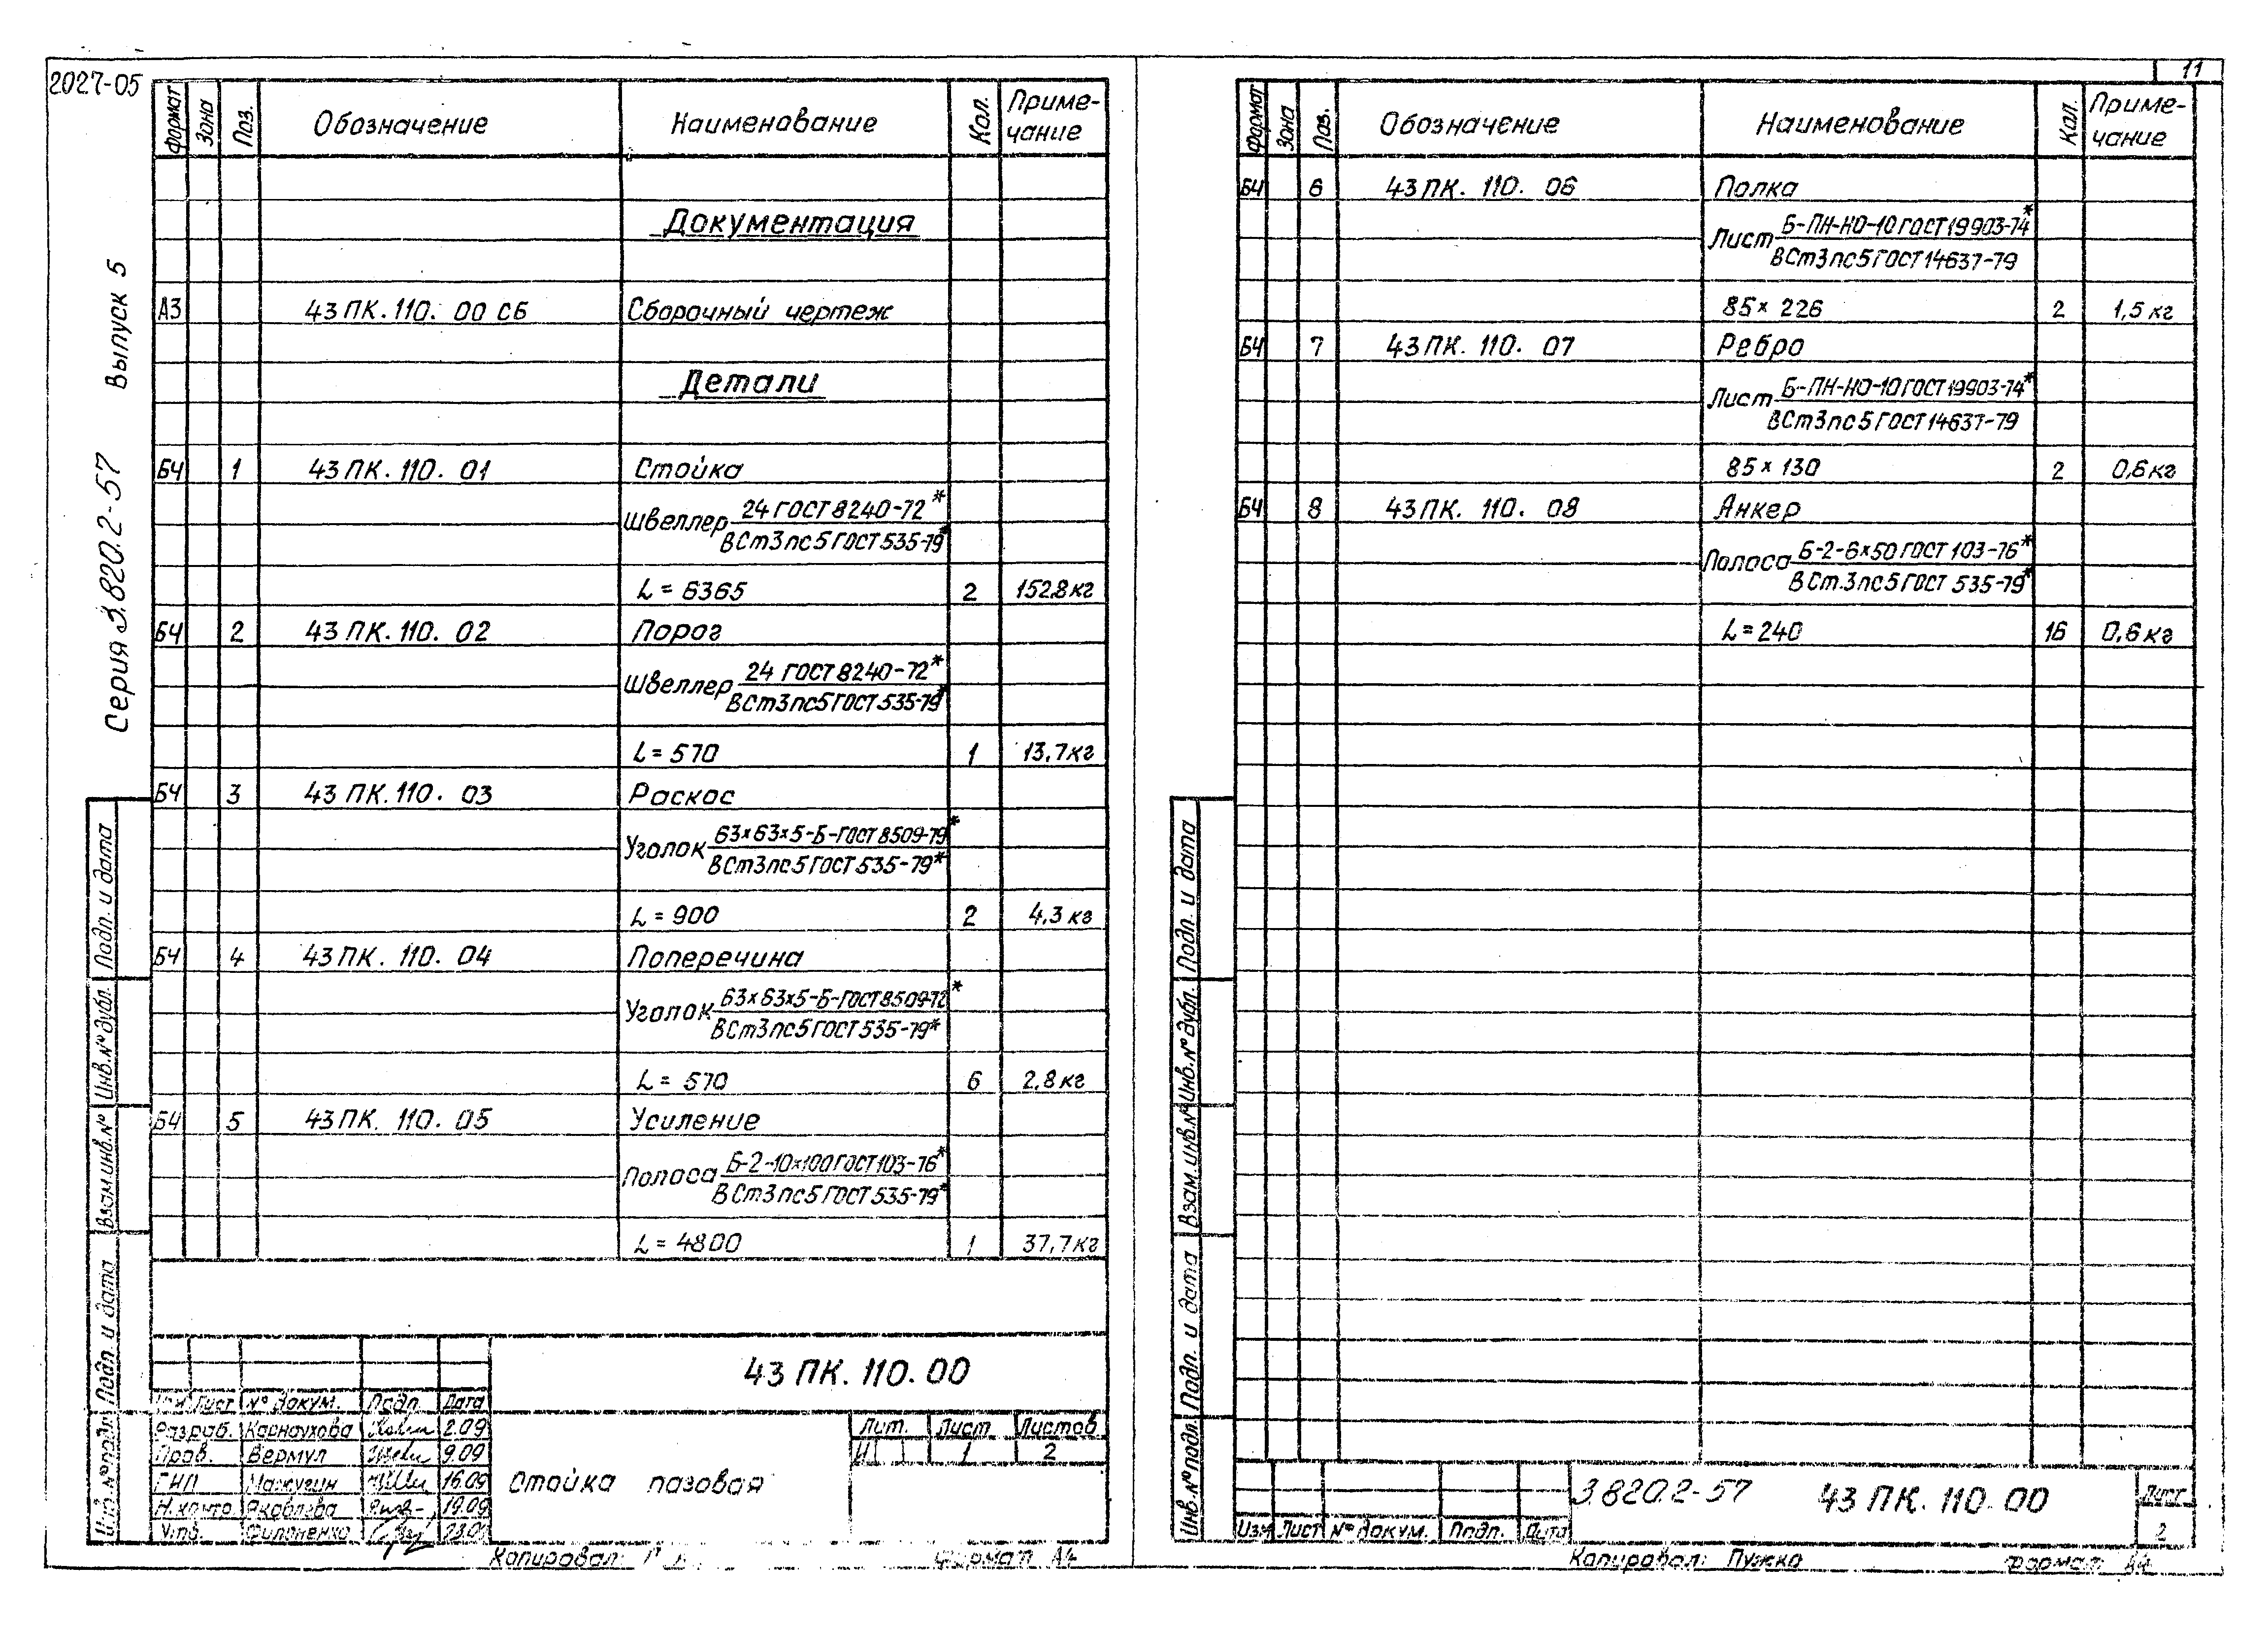 2027-05
Серия 3.820.2-57 Выпуск 5
Формат Зона Поз. Обозначение Наименование Кол. Приме-
чание
Документация
А3 43 ПК. 110. 00 СБ Сборочный чертеж
Детали
БЧ 1 43 ПК. 110. 01 Стойка
Швеллер 24 ГОСТ 8240-72*
ВСт3пс5 ГОСТ 535-79*
L = 6365 2 152,8 кг
БЧ 2 43 ПК. 110. 02 Порог
Швеллер 24 ГОСТ 8240-72*
ВСт3пс5 ГОСТ 535-79*
L = 570 1 13,7 кг
БЧ 3 43 ПК. 110. 03 Раскос
Уголок 63х63х5-Б-ГОСТ 8509-79*
ВСт3пс5 ГОСТ 535-79*
L = 900 2 4,3 кг
БЧ 4 43 ПК. 110. 04 Поперечина
Уголок 63х63х5-Б-ГОСТ 8509-72*
ВСт3пс5 ГОСТ 535-79*
L = 570 6 2,8 кг
БЧ 5 43 ПК. 110. 05 Усиление
Полоса Б-2-10х100 ГОСТ 103-76*
ВСт3пс5 ГОСТ 535-79*
L = 4800 1 37,7 кг
43 ПК. 110. 00
Изм Лист № докум. Подп. Дата
Разраб. Карнаухова 2.09
Пров. Вермул 9.09
ГИП 16.09
Н.контр. Яковлева 19.09
Утв. Филоненко
Стойка пазовая
Лит. Лист Листов
И 1 2
Копировал: Формат А4
Инв. № подл. Подп. и дата Взам. инв. № Инв. № дубл. Подп. и дата
11
Формат Зона Поз. Обозначение Наименование Кол. Приме-
чание
БЧ 6 43 ПК. 110. 06 Полка
Лист Б-ПН-НО-10 ГОСТ 19903-74*
ВСт3пс5 ГОСТ 14637-79
85х 226 2 1,5 кг
БЧ 7 43 ПК. 110. 07 Ребро
Лист Б-ПН-НО-10 ГОСТ 19903-74*
ВСт3пс5 ГОСТ 14637-79
85 х 130 2 0,6 кг
БЧ 8 43 ПК. 110. 08 Анкер
Полоса Б-2-6х50 ГОСТ 103-76*
ВСт.3пс5 ГОСТ 535-79*
L = 240 16 0,6 кг
3.820.2-57 43 ПК. 110. 00
Лист
2
Изм Лист № докум. Подп. Дата
Копировал: Пужка Формат А4
Инв. № подл. Подп. и дата Взам. инв. № Инв. № дубл. Подп. и дата